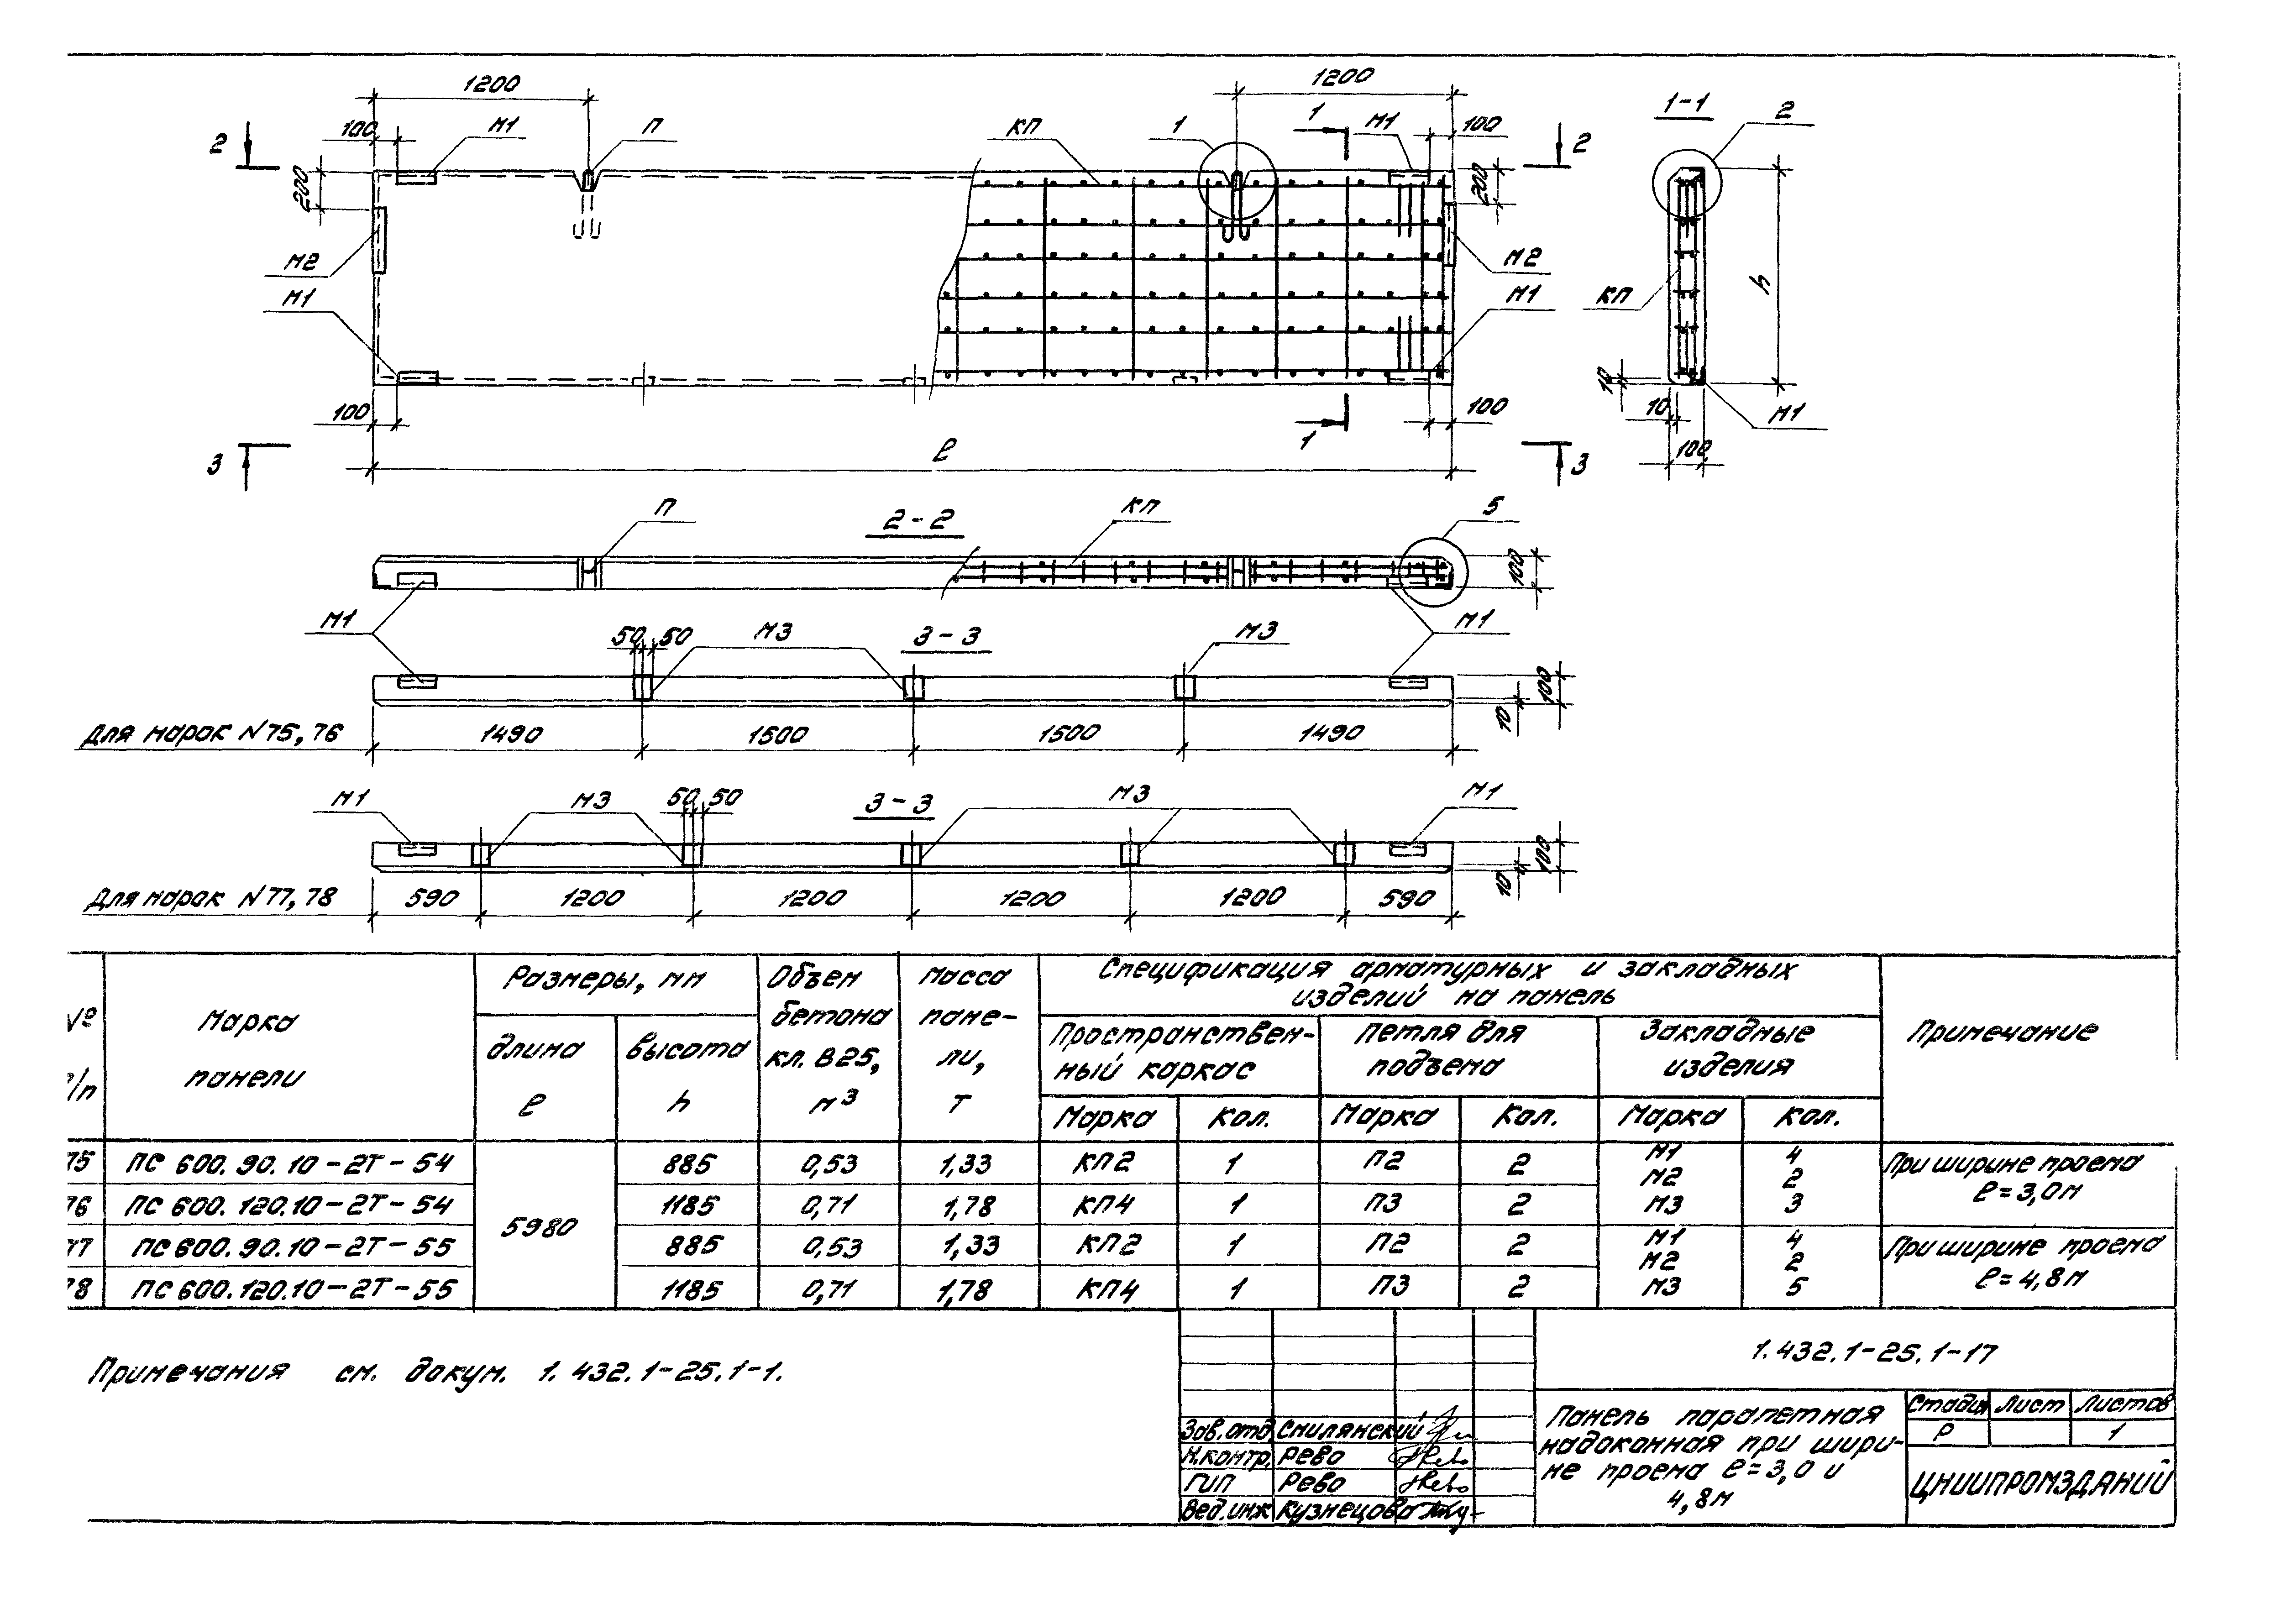 1200
1200
100
М1
П
КП
1
1
М1
100
1-1
2
2
2
200
200
М2
М1
М2
М1
КП
h
100
100
10
10
М1
100
3
ℓ
1
3
П
2-2
КП
5
100
М1
50
50
М3
3-3
М3
М1
100
10
Для марок N75, 76
1490
1500
1500
1490
М1
М3
50
50
3-3
М3
М1
100
10
Для марок N77, 78
590
1200
1200
1200
1200
590
№ п/п
Марка панели
Размеры, мм
длина ℓ
высота h
Объем бетона кл. В25, м³
Масса пане-ли, т
Спецификация арматурных и закладных
изделий на панель
Пространствен-
ный каркас
Петля для
подъема
Закладные
изделия
Примечание
Марка Кол. Марка Кол. Марка Кол.
75 ПС 600.90.10-2Т-54 5980 885 0,53 1,33 КП2 1 П2 2
М1 4
М2 2
М3 3
При ширине проема
ℓ=3,0м
76 ПС 600.120.10-2Т-54 1185 0,71 1,78 КП4 1 П3 2
77 ПС 600.90.10-2Т-55 885 0,53 1,33 КП2 1 П2 2
М1 4
М2 2
М3 5
При ширине проема
ℓ=4,8м
78 ПС 600.120.10-2Т-55 1185 0,71 1,78 КП4 1 П3 2
Примечания см. докум. 1.432.1-25.1-1.
1.432.1-25.1-17
Зав.отд. Смилянский
Н.контр. Рево
ГИП Рево
Вед.инж Кузнецова
Панель парапетная
надоконная при шири-
не проема ℓ=3,0 и
4,8м
Стадия Лист Листов
Р 1
ЦНИИПРОМЗДАНИЙ